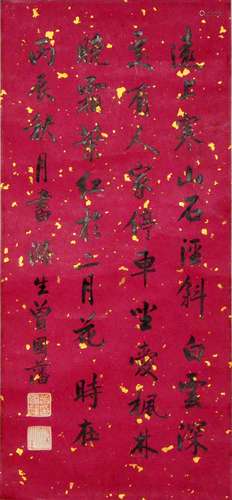 遠上寒山石徑斜白雲深
處有人家停車坐愛楓林
晚霜葉紅於二月花時在
丙辰秋月書滌生曾國藩